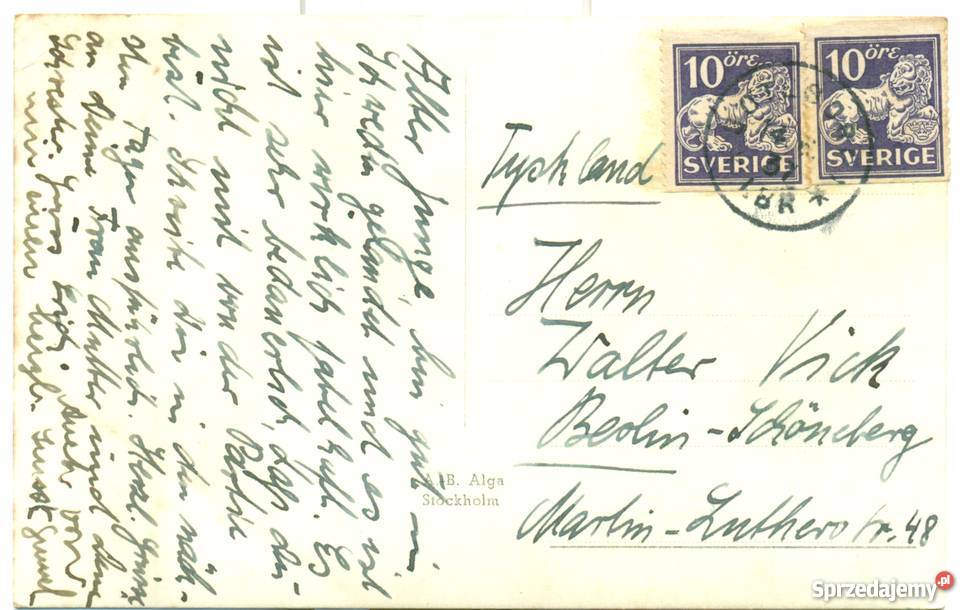 Alter Junge, bin gut in
Schweden gelandet und es ist
hier wirklich fabelhaft. Es
ist sehr bedauerlich, dass du
nicht mit von der Partie
bist. Schreibe dir in den näch-
sten Tagen ausführlich. Herzl. Grüsse
an deine Frau Mutter und deine
Schwester. Euch von
mir einen herzl. Gruss
Tyskland
Herrn
Walter Vick
Berlin-Schöneberg
Martin-Lutherstr. 48
A.-B. Alga
Stockholm
10 öre
SVERIGE
10 öre
SVERIGE
Sprzedajemy.pl